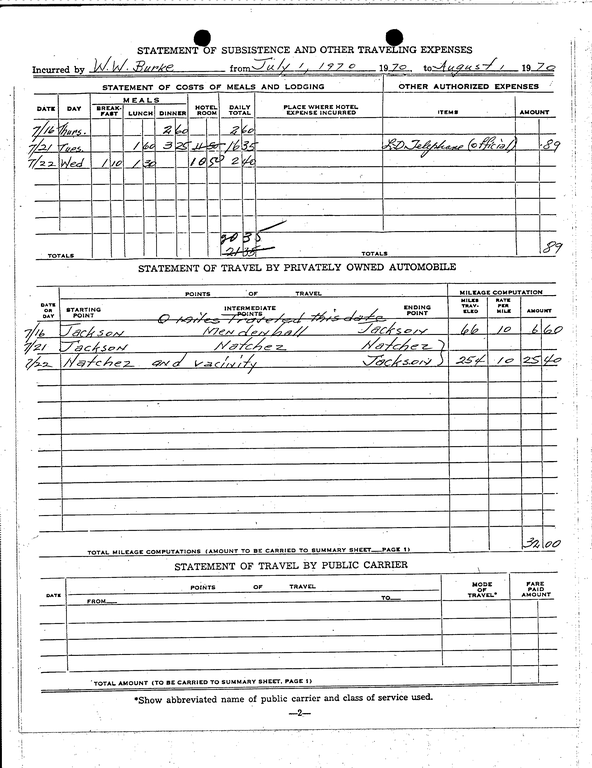 STATEMENT OF SUBSISTENCE AND OTHER TRAVELING EXPENSES
Incurred by W.W. Burke from July 1, 1970 1970 to August 1 1970
STATEMENT OF COSTS OF MEALS AND LODGING OTHER AUTHORIZED EXPENSES
MEALS
DATE DAY BREAK-FAST LUNCH DINNER HOTEL ROOM DAILY TOTAL PLACE WHERE HOTEL EXPENSE INCURRED ITEMS AMOUNT
7/16 Thurs. 2 60 2 60
7/21 Tues. 1 60 3 25 11 50 16 35 LD Telephone (official) .89
7/22 Wed 1 10 1 30 10 50 2 40
20 35
21 35
TOTALS TOTALS .89
STATEMENT OF TRAVEL BY PRIVATELY OWNED AUTOMOBILE
POINTS OF TRAVEL MILEAGE COMPUTATION
DATE OR DAY STARTING POINT INTERMEDIATE POINTS ENDING POINT MILES TRAV-ELED RATE PER MILE AMOUNT
0 miles traveled this date
7/16 Jackson Mendenhall Jackson 66 10 6 60
7/21 Jackson Natchez Natchez
7/22 Natchez and vacinity Jackson 254 10 25 40
32.00
TOTAL MILEAGE COMPUTATIONS (AMOUNT TO BE CARRIED TO SUMMARY SHEET PAGE 1)
STATEMENT OF TRAVEL BY PUBLIC CARRIER
DATE POINTS OF TRAVEL MODE OF TRAVEL* FARE PAID AMOUNT
FROM TO
TOTAL AMOUNT (TO BE CARRIED TO SUMMARY SHEET, PAGE 1)
*Show abbreviated name of public carrier and class of service used.
—2—